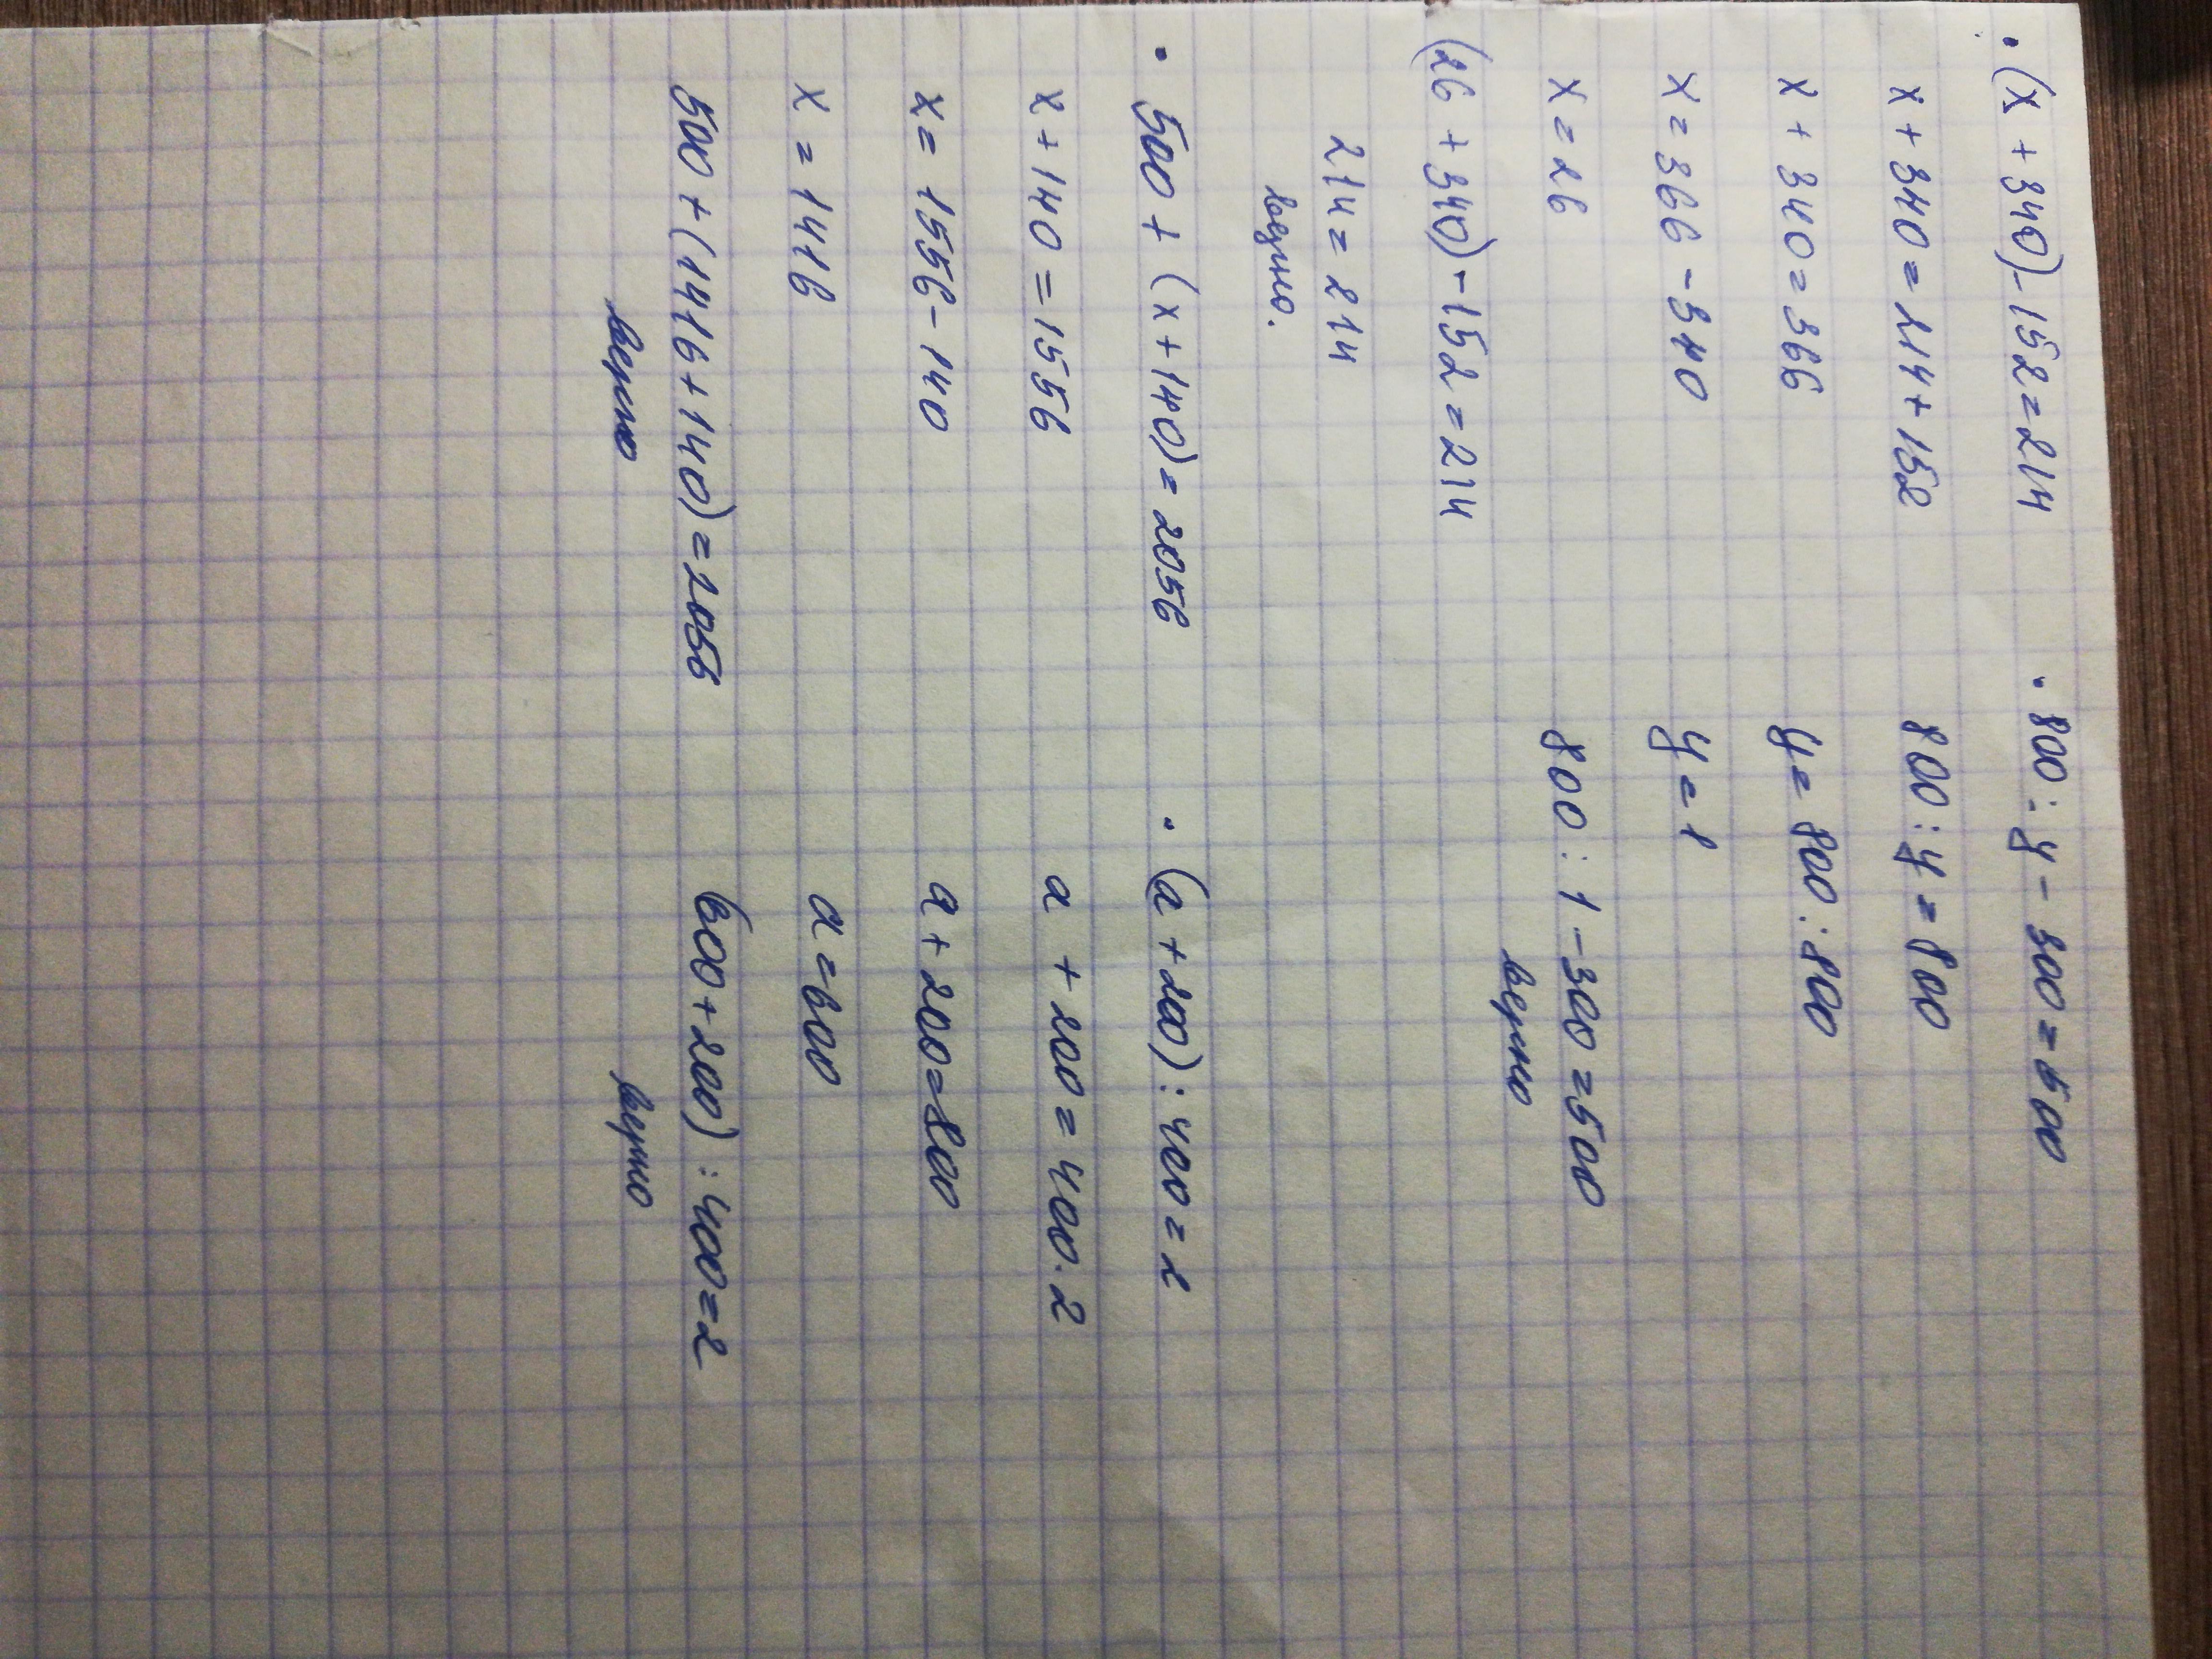 · (x + 340) - 152 = 214
x + 340 = 214 + 152
x + 340 = 366
x = 366 - 340
x = 26
(26 + 340) - 152 = 214
214 = 214
верно.
· 800 : y - 300 = 500
800 : y = 800
y = 800 : 800
y = 1
800 : 1 - 300 = 500
верно
· 500 + (x + 140) = 2056
x + 140 = 1556
x = 1556 - 140
x = 1416
500 + (1416 + 140) = 2056
верно
· (a + 200) : 400 = 2
a + 200 = 400 · 2
a + 200 = 800
a = 600
(600 + 200) : 400 = 2
верно